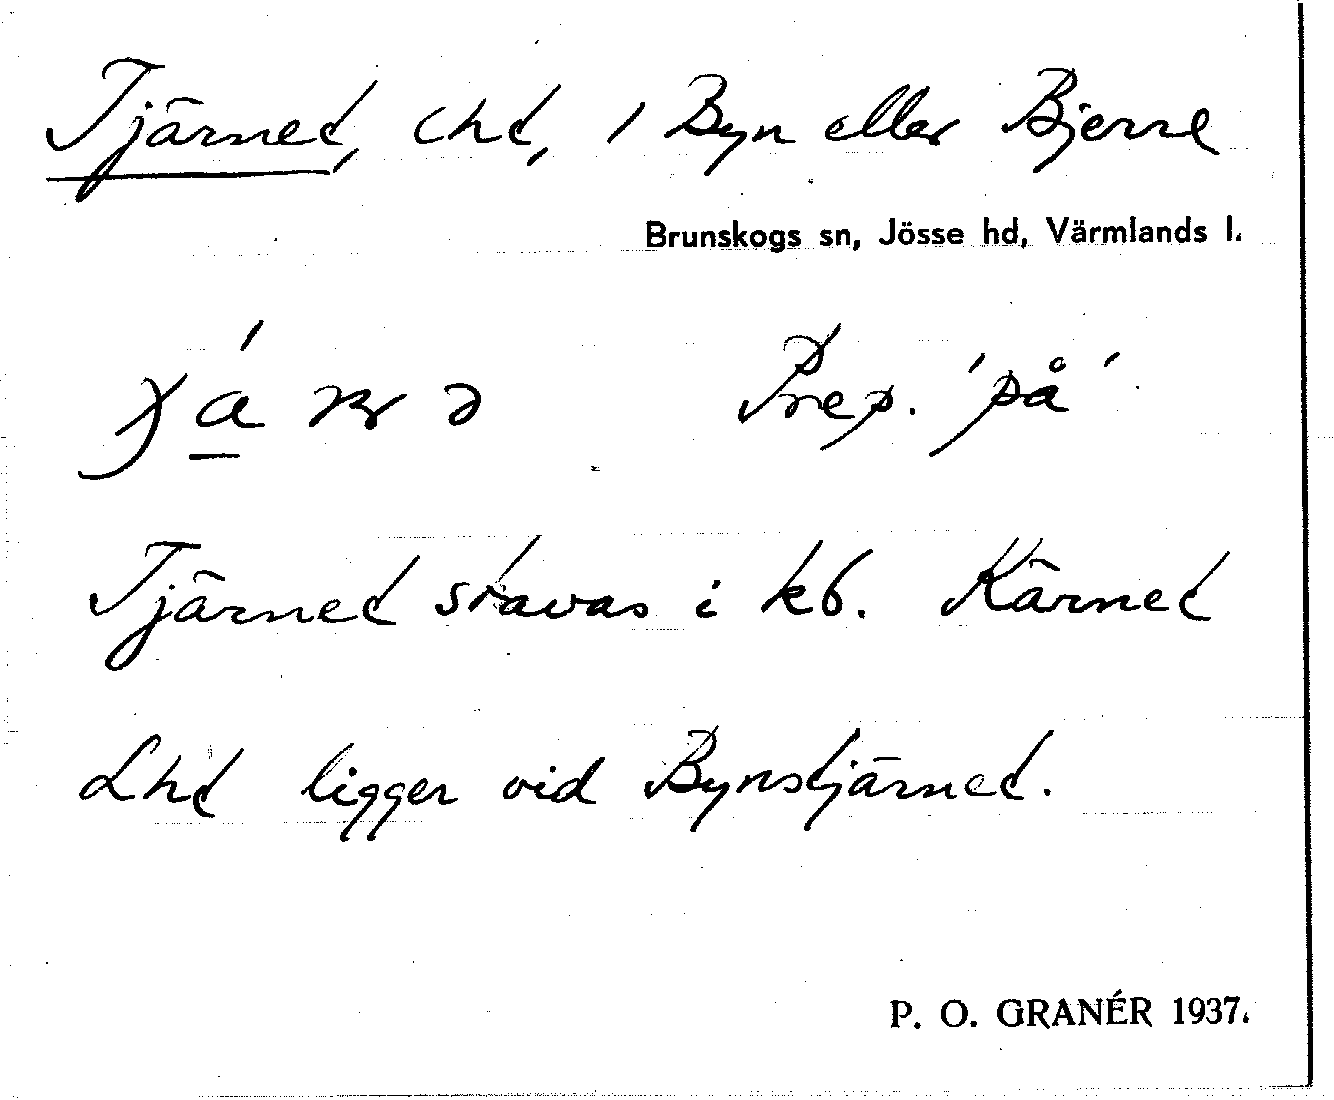 Tjärnet, lht, 1 Byn eller Bjerre
Brunskogs sn, Jösse hd, Värmlands l.
Prep. 'på'
Tjärnet stavas i kb. Kärnet
Lht ligger vid Bynstjärnet.
P. O. GRANÉR 1937.